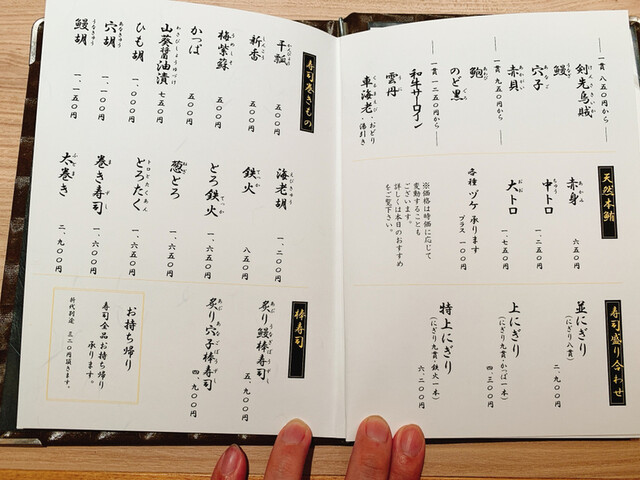 一貫 八五〇円から
剣先烏賊
鰻
穴子
赤貝
一貫 九五〇円から
鮑
のど黒
一貫 一二五〇円から
和牛サーロイン
雲丹
車海老・おどり・湯引き
天然本鮪
赤身 六五〇円
中トロ 一、二五〇円
大トロ 一、七五〇円
各種 ヅケ 承ります
プラス 一〇〇円
※価格は時価に応じて
変動することも
ございます。
詳しくは本日のおすすめ
をご覧下さい。
寿司盛り合わせ
並にぎり
(にぎり八貫)
二、九〇〇円
上にぎり
(にぎり九貫・かっぱ一本)
四、三〇〇円
特上にぎり
(にぎり九貫・鉄火一本)
六、二〇〇円
寿司巻きもの
干瓢 五〇〇円
新香 五〇〇円
梅紫蘇 五〇〇円
かっぱ 五〇〇円
山葵醤油漬 七五〇円
ひも胡 一、〇〇〇円
穴胡 一、一〇〇円
鰻胡 一、一五〇円
海老胡 一、二〇〇円
鉄火 八五〇円
とろ鉄火 一、六五〇円
葱とろ 一、六五〇円
とろたく 一、六五〇円
巻き寿司 一、六〇〇円
太巻き 二、九〇〇円
棒寿司
炙り鰻棒寿司 五、九〇〇円
炙り穴子棒寿司 四、九〇〇円
お持ち帰り
寿司全品お持ち帰り
承ります。
折代別途 三二〇円頂きます。